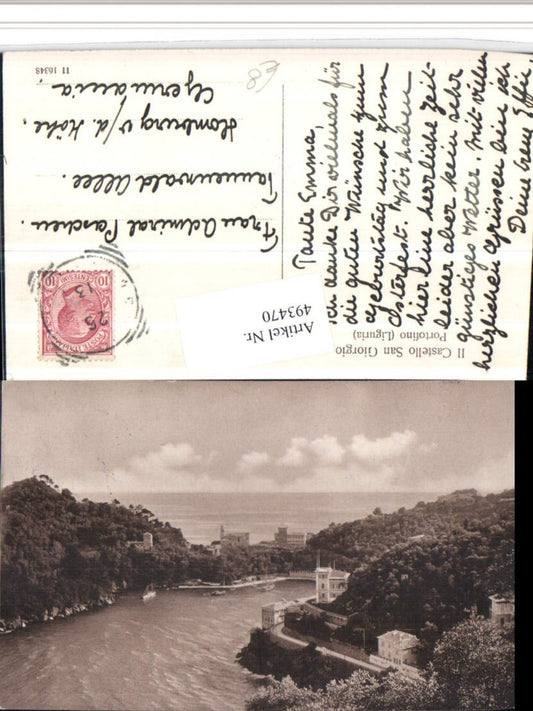 Tante Emma,
ich danke Dir vielmals für
die guten Wünsche zum
Geburtstag und zum
Osterfest. Wir haben
hier eine herrliche Zeit
leider aber kein sehr
günstiges Wetter. Mit vielen
herzlichen Grüssen bin ich
Deine treue Effie.
Frau Admiral Paschen.
Tannenwald Allee.
Homburg v/d. Höhe.
Germania
II 16348
Il Castello San Giorgio
Portofino (Liguria)
Artikel Nr.
493470
10
POSTE ITALIANE
CENTESIMI
10
25
13
€8